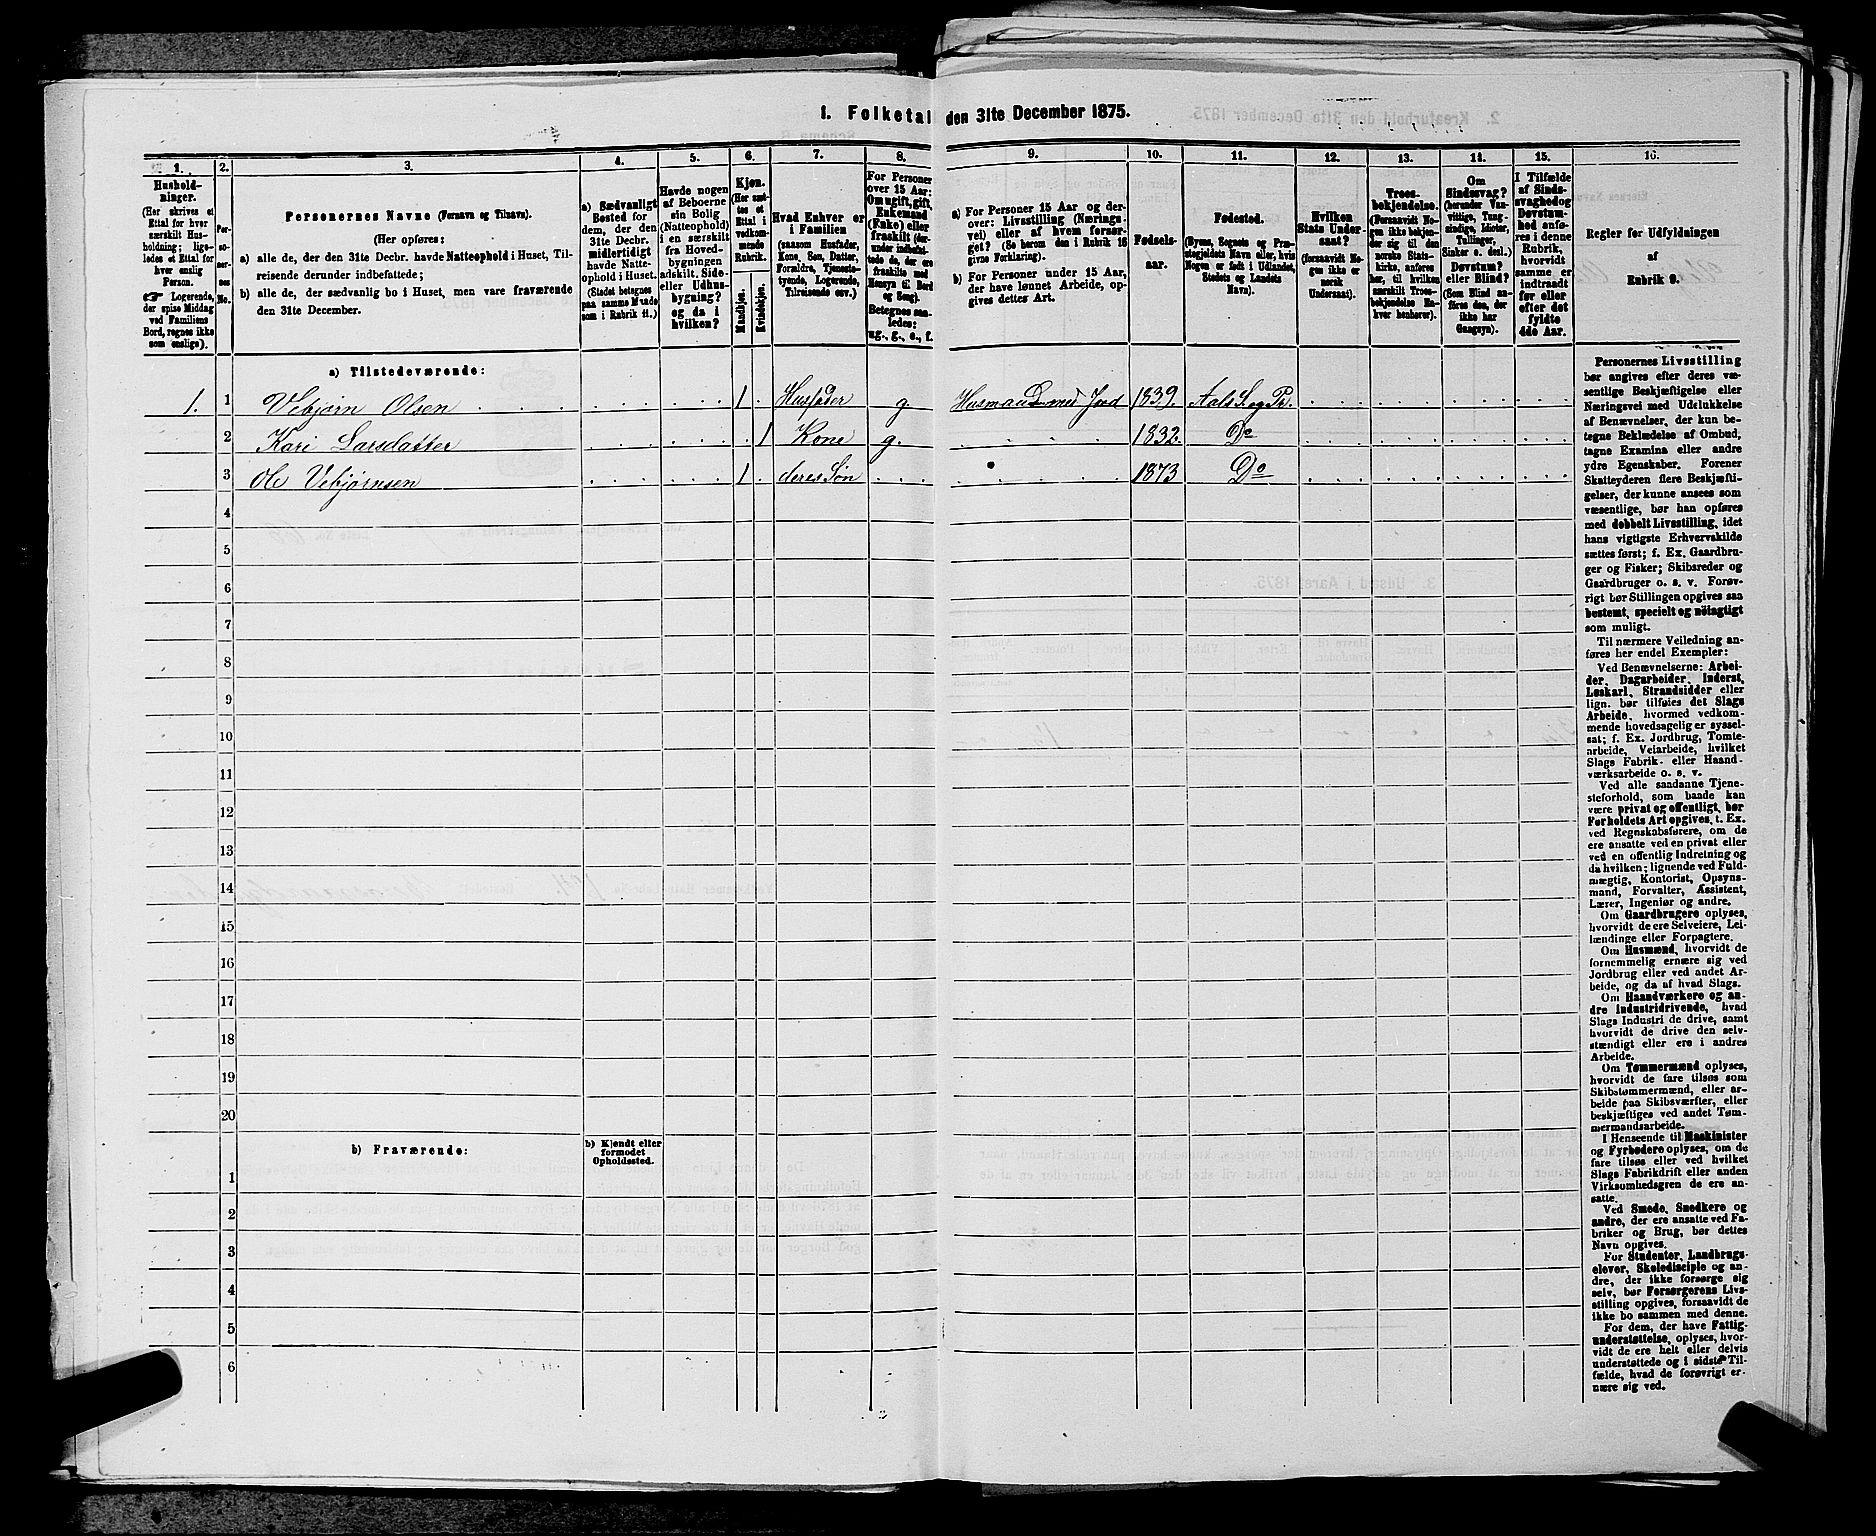 1. Folketal den 31te December 1875.
1.
2.
3.
4.
5.
6.
7.
8.
9.
10.
11.
12.
13.
14.
15.
16.
Hushold-
ninger.
(Her skrives et
Ettal for hver
særskilt Hus-
holdning; lige-
ledes et Ettal for
hver enslig
Person.
☞ Logerende,
der spise Middag
ved Familiens
Bord, regnes ikke
som enslige).
Per-
so-
ner-
nes
No.
Personernes Navne (Fornavn og Tilnavn).
(Her opføres:
a) alle de, der den 31te Decbr. havde Natteophold i Huset, Til-
reisende derunder indbefattede;
b) alle de, der sædvanlig bo i Huset, men vare fraværende
den 31te December.
a) Sædvanligt
Bosted for
dem, der den
31te Decbr.
midlertidigt
havde Natte-
ophold i Huset.
(Stedet betegnes
paa samme Maade
som i Rubrik 11.)
Havde nogen
af Beboerne
sin Bolig
(Natteophold)
i en særskilt
fra Hoved-
bygningen
adskilt Side-
eller Udhus-
bygning?
og da i
hvilken?
Kjøn.
(Her sæt-
tes et
Ettal i
vedkom-
mende
Rubrik.
Mandkjøn.
Kvindekjøn.
Hvad Enhver er
i Familien
(saasom Husfader,
Kone, Søn, Datter,
Forældre, Tjeneste-
tyende, Logerende,
Tilreisende osv.)
For Personer
over 15 Aar:
Om ugift, gift,
Enkemand
(Enke) eller
fraskilt (der-
under indbefat-
tede de, der ere
fraskilte med
Hensyn til Bord
og Seng).
Betegnes saa-
ledes:
ug., g., e., f.
a) For Personer 15 Aar og der-
over: Livsstilling (Nærings-
vei) eller af hvem forsør-
get? (Se herom den i Rubrik 16
givne Forklaring).
b) For Personer under 15 Aar,
der have lønnet Arbeide, op-
gives dettes Art.
Fødsels-
aar.
Fødested.
(Byens, Sognets og Præ-
stegjeldets Navn eller, hvis
Nogen er født i Udlandet,
Stedets og Landets
Navn).
Hvilken
Stats Under-
saat?
(forsaavidt No-
gen ikke er
norsk
Undersaat).
Troes-
bekjendelse.
(Forsaavidt No-
gen ikke bekjen-
der sig til den
norske Stats-
kirke, anføres
her, til hvilken
særskilt Troes-
bekjendelse En-
hver henhører).
Om
Sindssvag?
(herunder Van-
vittige, Tung-
sindige, Idioter,
Tullinger,
Sinker o. desl.)
Døvstum?
eller Blind?
(Som Blind an-
føres den, der
ikke har
Gangsyn).
I Tilfælde
af Sinds-
svaghed og
Døvstum-
hed anfø-
res i denne
Rubrik,
hvorvidt
samme er
indtraadt
før eller
efter det
fyldte
4de Aar.
Regler for Udfyldningen
af
Rubrik 9.
a) Tilstedeværende:
1. 1 Vebjørn Olsen 1 Husfader g Husmand med Jord 1839. Aals S. og Pr.
2 Kari Larsdatter 1 Kone g. 1832. Do
3 Ole Vebjørnsen 1 deres Søn 1873 Do
4
5
6
7
8
9
10
11
12
13
14
15
16
17
18
19
20
b) Fraværende:
b) Kjendt eller
formodet
Opholdssted.
1
2
3
4
5
6
Personernes Livsstilling
bør angives efter deres væ-
sentlige Beskjæftigelse eller
Næringsvei med Udelukkelse
af Benævnelser, der kun be-
tegne Beklædelse af Ombud,
tagne Examina eller andre
ydre Egenskaber. Forener
Skatteyderen flere Beskjæfti-
gelser, der kunne ansees som
væsentlige, bør han opføres
med dobbelt Livsstilling, idet
hans vigtigste Erhvervskilde
sættes først; f. Ex. Gaardbru-
ger og Fisker; Skibsreder og
Gaardbruger o. s. v. Forøv-
rigt bør Stillingen opgives saa
bestemt, specielt og nøiagtigt
som muligt.
Til nærmere Veiledning an-
føres her endel Exempler:
Ved Benævnelserne: Arbei-
der, Dagarbeider, Inderst,
Løskarl, Strandsidder eller
lign. bør tilføies det Slags
Arbeide, hvormed vedkom-
mende hovedsagelig er syssel-
sat; f. Ex. Jordbrug, Tomte-
arbeide, Veiarbeide, hvilket
Slags Fabrik- eller Haand-
værksarbeide o. s. v.
Ved alle saadanne Tjene-
steforhold, som baade kan
være privat og offentligt, bør
Forholdets Art opgives, t. Ex.
ved Regnskabsførere, om de
ere ansatte ved en privat eller
ved en offentlig Indretning og
da hvilken; lignende ved Fuld-
mægtig, Kontorist, Opsyns-
mand, Forvalter, Assistent,
Lærer, Ingeniør og andre.
Om Gaardbrugere oplyses,
hvorvidt de ere Selveiere, Lei-
lændinge eller Forpagtere.
Om Husmænd, hvorvidt de
fornemmelig ernære sig ved
Jordbrug eller ved andet Ar-
beide, og da af hvad Slags.
Om Haandværkere og an-
dre Industridrivende, hvad
Slags Industri de drive, samt
hvorvidt de drive den selv-
stændigt eller ere i andres
Arbeide.
Om Tømmermænd oplyses,
hvorvidt de fare tilsøs som
Skibstømmermænd, eller ar-
beide paa Skibsværfter, eller
beskjæftiges ved andet Tøm-
mermandsarbeide.
I Henseende til Maskinister
og Fyrbødere oplyses, om de
fare tilsøs eller ved hvilket
Slags Fabrikdrift eller anden
Virksomhedsgren de ere an-
satte.
Ved Smede, Snedkere og
andre, der ere ansatte ved Fa-
briker og Brug, bør dettes
Navn opgives.
For Studenter, Landbrugs-
elever, Skoledisciple og an-
dre, der ikke forsørge sig
selv, bør Forsørgerens Livs-
stilling opgives, forsaavidt de
ikke bo sammen med denne.
For dem, der have Fattig-
understøttelse, oplyses, hvor-
vidt de ere helt eller delvis
understøttede og i sidste Til-
fælde, hvad de forøvrigt er-
nære sig ved.